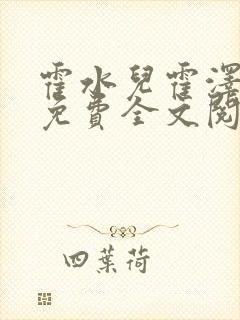 霍水兒霍澤
免費全文閱
四葉荷